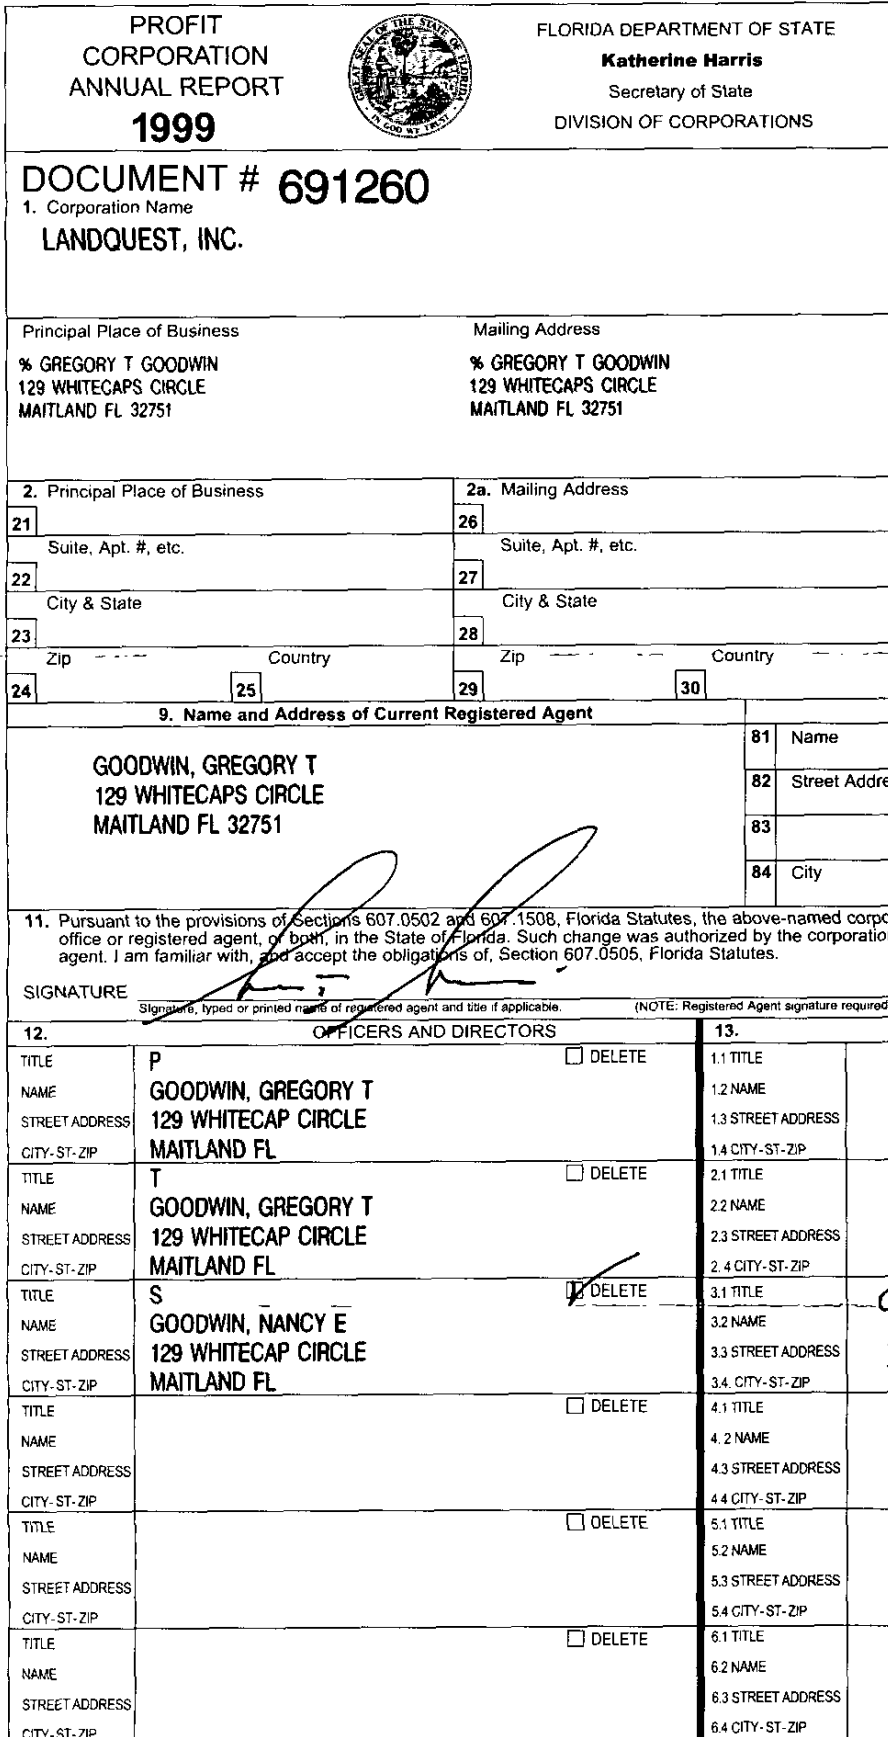 PROFIT
CORPORATION
ANNUAL REPORT
1999
GREAT SEAL OF THE STATE OF FLORIDA
IN GOD WE TRUST
FLORIDA DEPARTMENT OF STATE
Katherine Harris
Secretary of State
DIVISION OF CORPORATIONS
DOCUMENT # 691260
1. Corporation Name
LANDQUEST, INC.
Principal Place of Business
% GREGORY T GOODWIN
129 WHITECAPS CIRCLE
MAITLAND FL 32751
Mailing Address
% GREGORY T GOODWIN
129 WHITECAPS CIRCLE
MAITLAND FL 32751
2. Principal Place of Business
2a. Mailing Address
21
26
Suite, Apt. #, etc.
Suite, Apt. #, etc.
22
27
City & State
City & State
23
28
Zip
Country
Zip
Country
24
25
29
30
9. Name and Address of Current Registered Agent
GOODWIN, GREGORY T
129 WHITECAPS CIRCLE
MAITLAND FL 32751
81 Name
82 Street Addre
83
84 City
11. Pursuant to the provisions of Sections 607.0502 and 607.1508, Florida Statutes, the above-named corpo
office or registered agent, or both, in the State of Florida. Such change was authorized by the corporatio
agent. I am familiar with, and accept the obligations of, Section 607.0505, Florida Statutes.
SIGNATURE
Signature, typed or printed name of registered agent and title if applicable.
(NOTE: Registered Agent signature required
12. OFFICERS AND DIRECTORS
13.
TITLE P DELETE
NAME GOODWIN, GREGORY T
STREET ADDRESS 129 WHITECAP CIRCLE
CITY-ST-ZIP MAITLAND FL
1.1 TITLE
1.2 NAME
1.3 STREET ADDRESS
1.4 CITY-ST-ZIP
TITLE T DELETE
NAME GOODWIN, GREGORY T
STREET ADDRESS 129 WHITECAP CIRCLE
CITY-ST-ZIP MAITLAND FL
2.1 TITLE
2.2 NAME
2.3 STREET ADDRESS
2.4 CITY-ST-ZIP
TITLE S DELETE
NAME GOODWIN, NANCY E
STREET ADDRESS 129 WHITECAP CIRCLE
CITY-ST-ZIP MAITLAND FL
3.1 TITLE
3.2 NAME
3.3 STREET ADDRESS
3.4. CITY-ST-ZIP
TITLE DELETE
NAME
STREET ADDRESS
CITY-ST-ZIP
4.1 TITLE
4.2 NAME
4.3 STREET ADDRESS
4.4 CITY-ST-ZIP
TITLE DELETE
NAME
STREET ADDRESS
CITY-ST-ZIP
5.1 TITLE
5.2 NAME
5.3 STREET ADDRESS
5.4 CITY-ST-ZIP
TITLE DELETE
NAME
STREET ADDRESS
CITY-ST-ZIP
6.1 TITLE
6.2 NAME
6.3 STREET ADDRESS
6.4 CITY-ST-ZIP